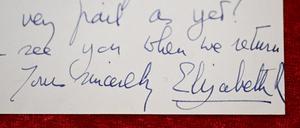 very frail as yet!
- see you when we return
Yours sincerely Elizabeth R